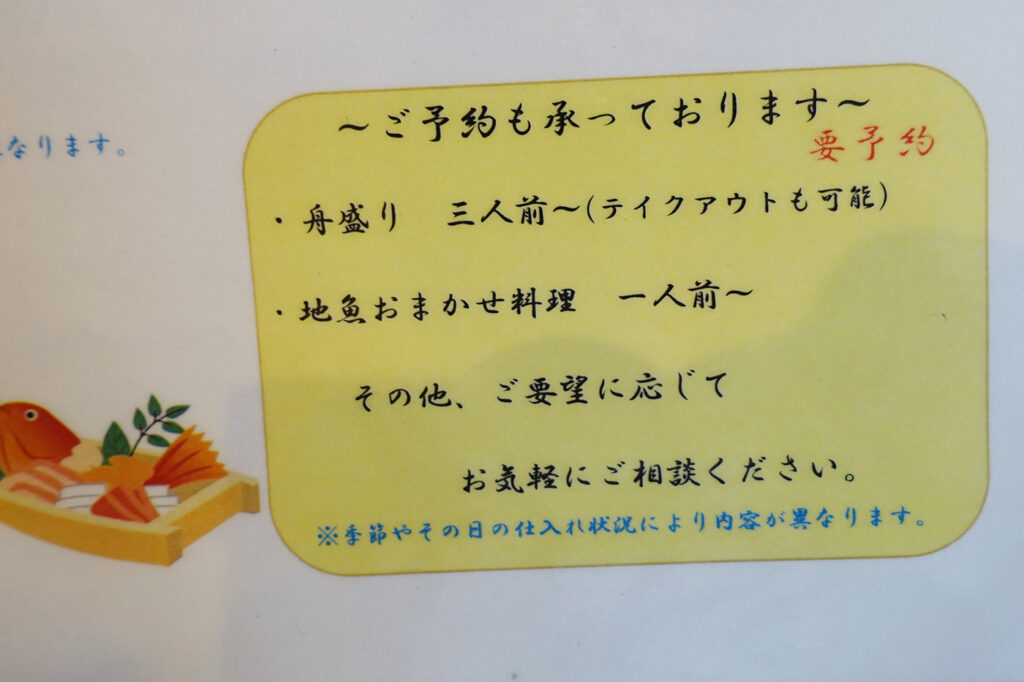 なります。
～ご予約も承っております～
要予約
・舟盛り　三人前～(テイクアウトも可能)
・地魚おまかせ料理　一人前～
その他、ご要望に応じて
お気軽にご相談ください。
※季節やその日の仕入れ状況により内容が異なります。